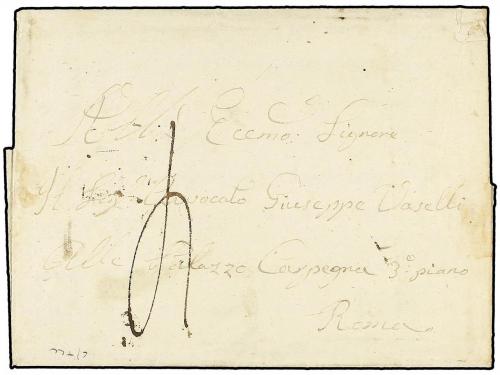 Eccmo Signore
Il Sig. Avvocato Giuseppe Vaselli
Alle Palazzo Carpegna 3.º piano
Roma